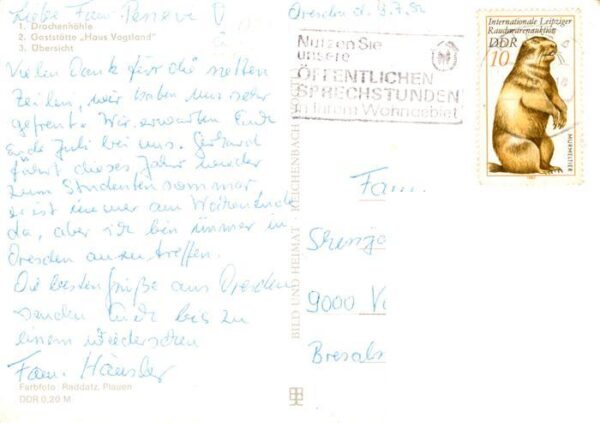 Liebe Fam.
1. Drachenhöhle
2. Gaststätte „Haus Vogtland"
3. Übersicht
Vielen Dank für die netten
Zeilen, wir haben uns sehr
gefreut. Wir erwarten Euch
Ende Juli bei uns. Gerhard
fährt dieses Jahr wieder
zum Studentensommer,
er ist immer am Wochenende
da, aber ich bin immer in
Dresden anzutreffen.
Die besten Grüße aus Dresden
senden Euch bis zu
einem Wiedersehen
Fam. Häusler
Farbfoto Raddatz, Plauen
DDR 0,20 M
BILD UND HEIMAT REICHENBACH
Dresden d. 9.7.82
Nutzen Sie
unsere
ÖFFENTLICHEN
SPRECHSTUNDEN
in Ihrem Wohngebiet
Internationale Leipziger
Rauchwarenauktion
DDR
10
MURMELTIER
Fam.
9000